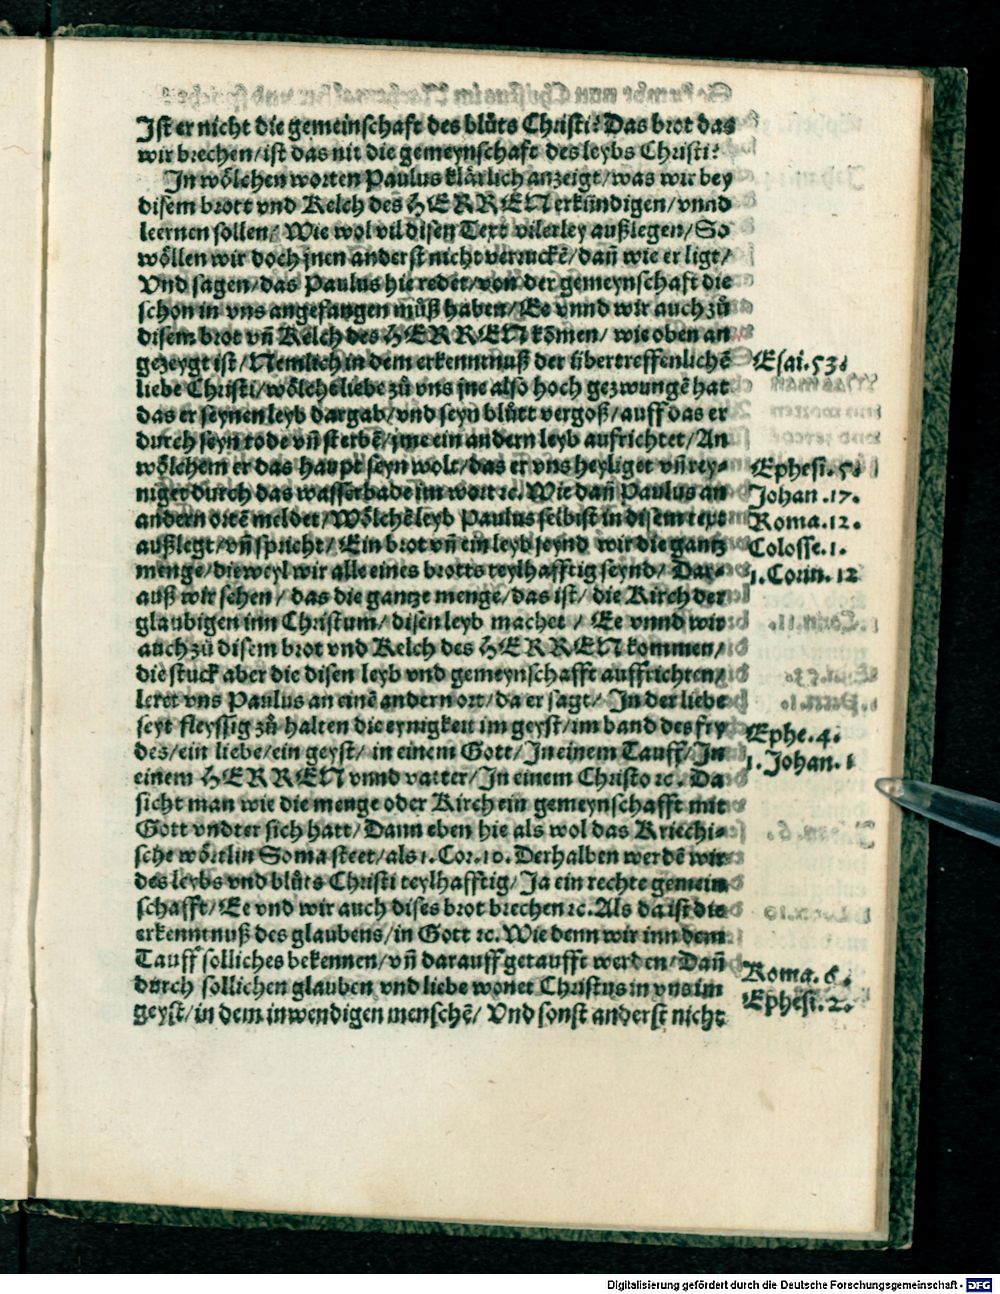 Ist er nicht die gemeinschaft des blůts Christi? Das brot das
wir brechen/ist das nit die gemeynschaft des leybs Christi?
In wölchen worten Paulus klärlich anzeigt/was wir bey
disem brott vnd Kelch des HERREN erkündigen/vnnd
leernen sollen/ Wie wol vil disen Text vilerley außlegen/So
wöllen wir doch jnen anderst nicht verruckē/dañ wie er ligt/
Vnd sagen/das Paulus hie redet/von der gemeynschaft die
schon in vns angefangen můß haben/Ee vnnd wir auch zů
disem brot vñ Kelch des HERREN kōmen/ wie oben an
gezeygt ist/Nemlich in dem erkenntnuß der übertreffenlichē
liebe Christi/wölche liebe zů vns jne also hoch gezwungē hat
das er seynen leyb dargab/vnd seyn blůtt vergoß/auff das er
durch seyn tode vñ sterbē/jme ein andern leyb aufrichtet/An
wölchem er das haupt seyn wolt/das er vns heyliget vñ rey-
niget durch das wasserbade im wort ꝛc. Wie dañ Paulus an
andern ortē meldet/Wölchē leyb Paulus selbist in disem text
außlegt/vñ spricht/ Ein brot vñ ein leyb seynd wir die gantz
menge/die weyl wir alle eines brotts teylhafftig seynd/ Dar-
auß wir sehen/ das die gantze menge/das ist/ die Kirch der
glaubigen inn Christum/ disen leyb machet / Ee vnnd wir
auch zů disem brot vnd Kelch des HERREN kommen/
die stuck aber die disen leyb vnd gemeynschafft auffrichten/
leret vns Paulus an einē andern ort/da er sagt/ In der liebe
seyt fleyssig zů halten die eynigkeit im geyst/im band des fry
des/ein liebe/ein geyst/ in einem Gott/In einem Tauff/In
einem HERREN vnnd vatter/In einem Christo ꝛc. Da
sicht man wie die menge oder Kirch ein gemeynschafft mit
Gott vndter sich hatt/Dann eben hie als wol das Kriechi-
sche wörtlin Soma steet/als 1. Cor. 10. Derhalben werdē wir
des leybs vnd blůts Christi teylhafftig/Ja ein rechte gemein
schafft/Ee vnd wir auch dises brot brechen ꝛc. Als da ist die
erkenntnuß des glaubens/in Gott ꝛc. Wie denn wir inn dem
Tauff solliches bekennen/vñ darauff getaufft werden/Dañ
durch sollichen glauben vnd liebe wonet Christus in vns im
geyst/in dem inwendigen menschē/ Vnd sonst anderst nicht
Esai. 53.
Ephesi. 5.
Johan. 17.
Roma. 12.
Colosse. 1.
1. Corin. 12
Ephe. 4.
1. Johan. 1
Roma. 6.
Ephesi. 2.
Digitalisierung gefördert durch die Deutsche Forschungsgemeinschaft - DFG